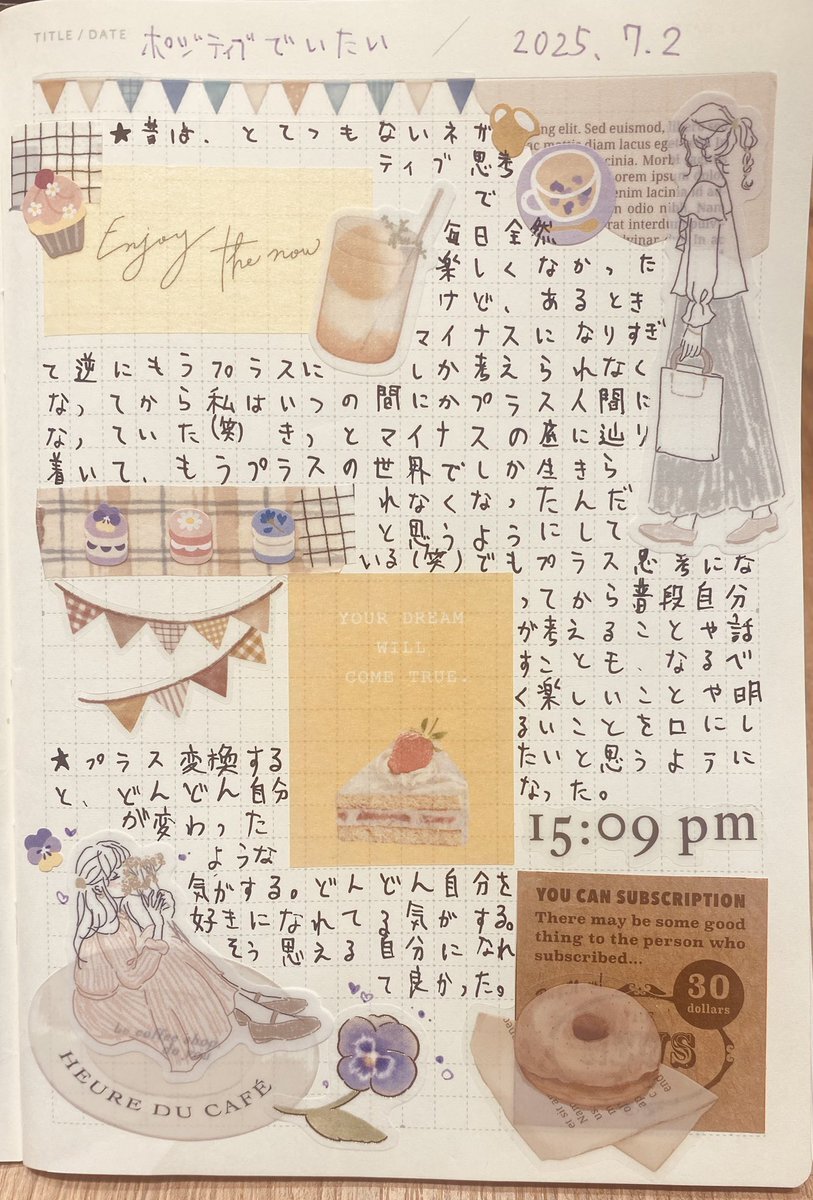 TITLE / DATE ポジティブでいたい / 2025. 7. 2
★昔は、とてつもないネガ
ティブ思考
で
毎日全然
楽しくなかった
けど、あるとき
マイナスになりすぎ
て逆にもうプラスにしか考えられなく
なってから私はいつの間にかプラス人間に
なっていた(笑) きっとマイナスの底に辿り
着いて、もうプラスの世界でしか生きら
れなくなったんだ
と思うようにして
いる(笑)でもプラス思考にな
ってから普段自分
が考えることや話
すことも、なるべ
く楽しいことや明
るいことを口にし
たいと思うように
なった。
★プラス変換する
と、どんどん自分
が変わった
ような
気がする。どんどん自分を
好きになれてる気がする。
そう思える自分になれ
て良かった。
Enjoy
the now
ng elit. Sed euismod,
mattis diam lacus eg
cinia. Morbi
orem ipsum
enim lacin
an odio nib
rat interdu
lvinar
YOUR DREAM
WILL
COME TRUE.
15:09 pm
YOU CAN SUBSCRIPTION
There may be some good
thing to the person who
subscribed...
30
dollars
HEURE DU CAFÉ